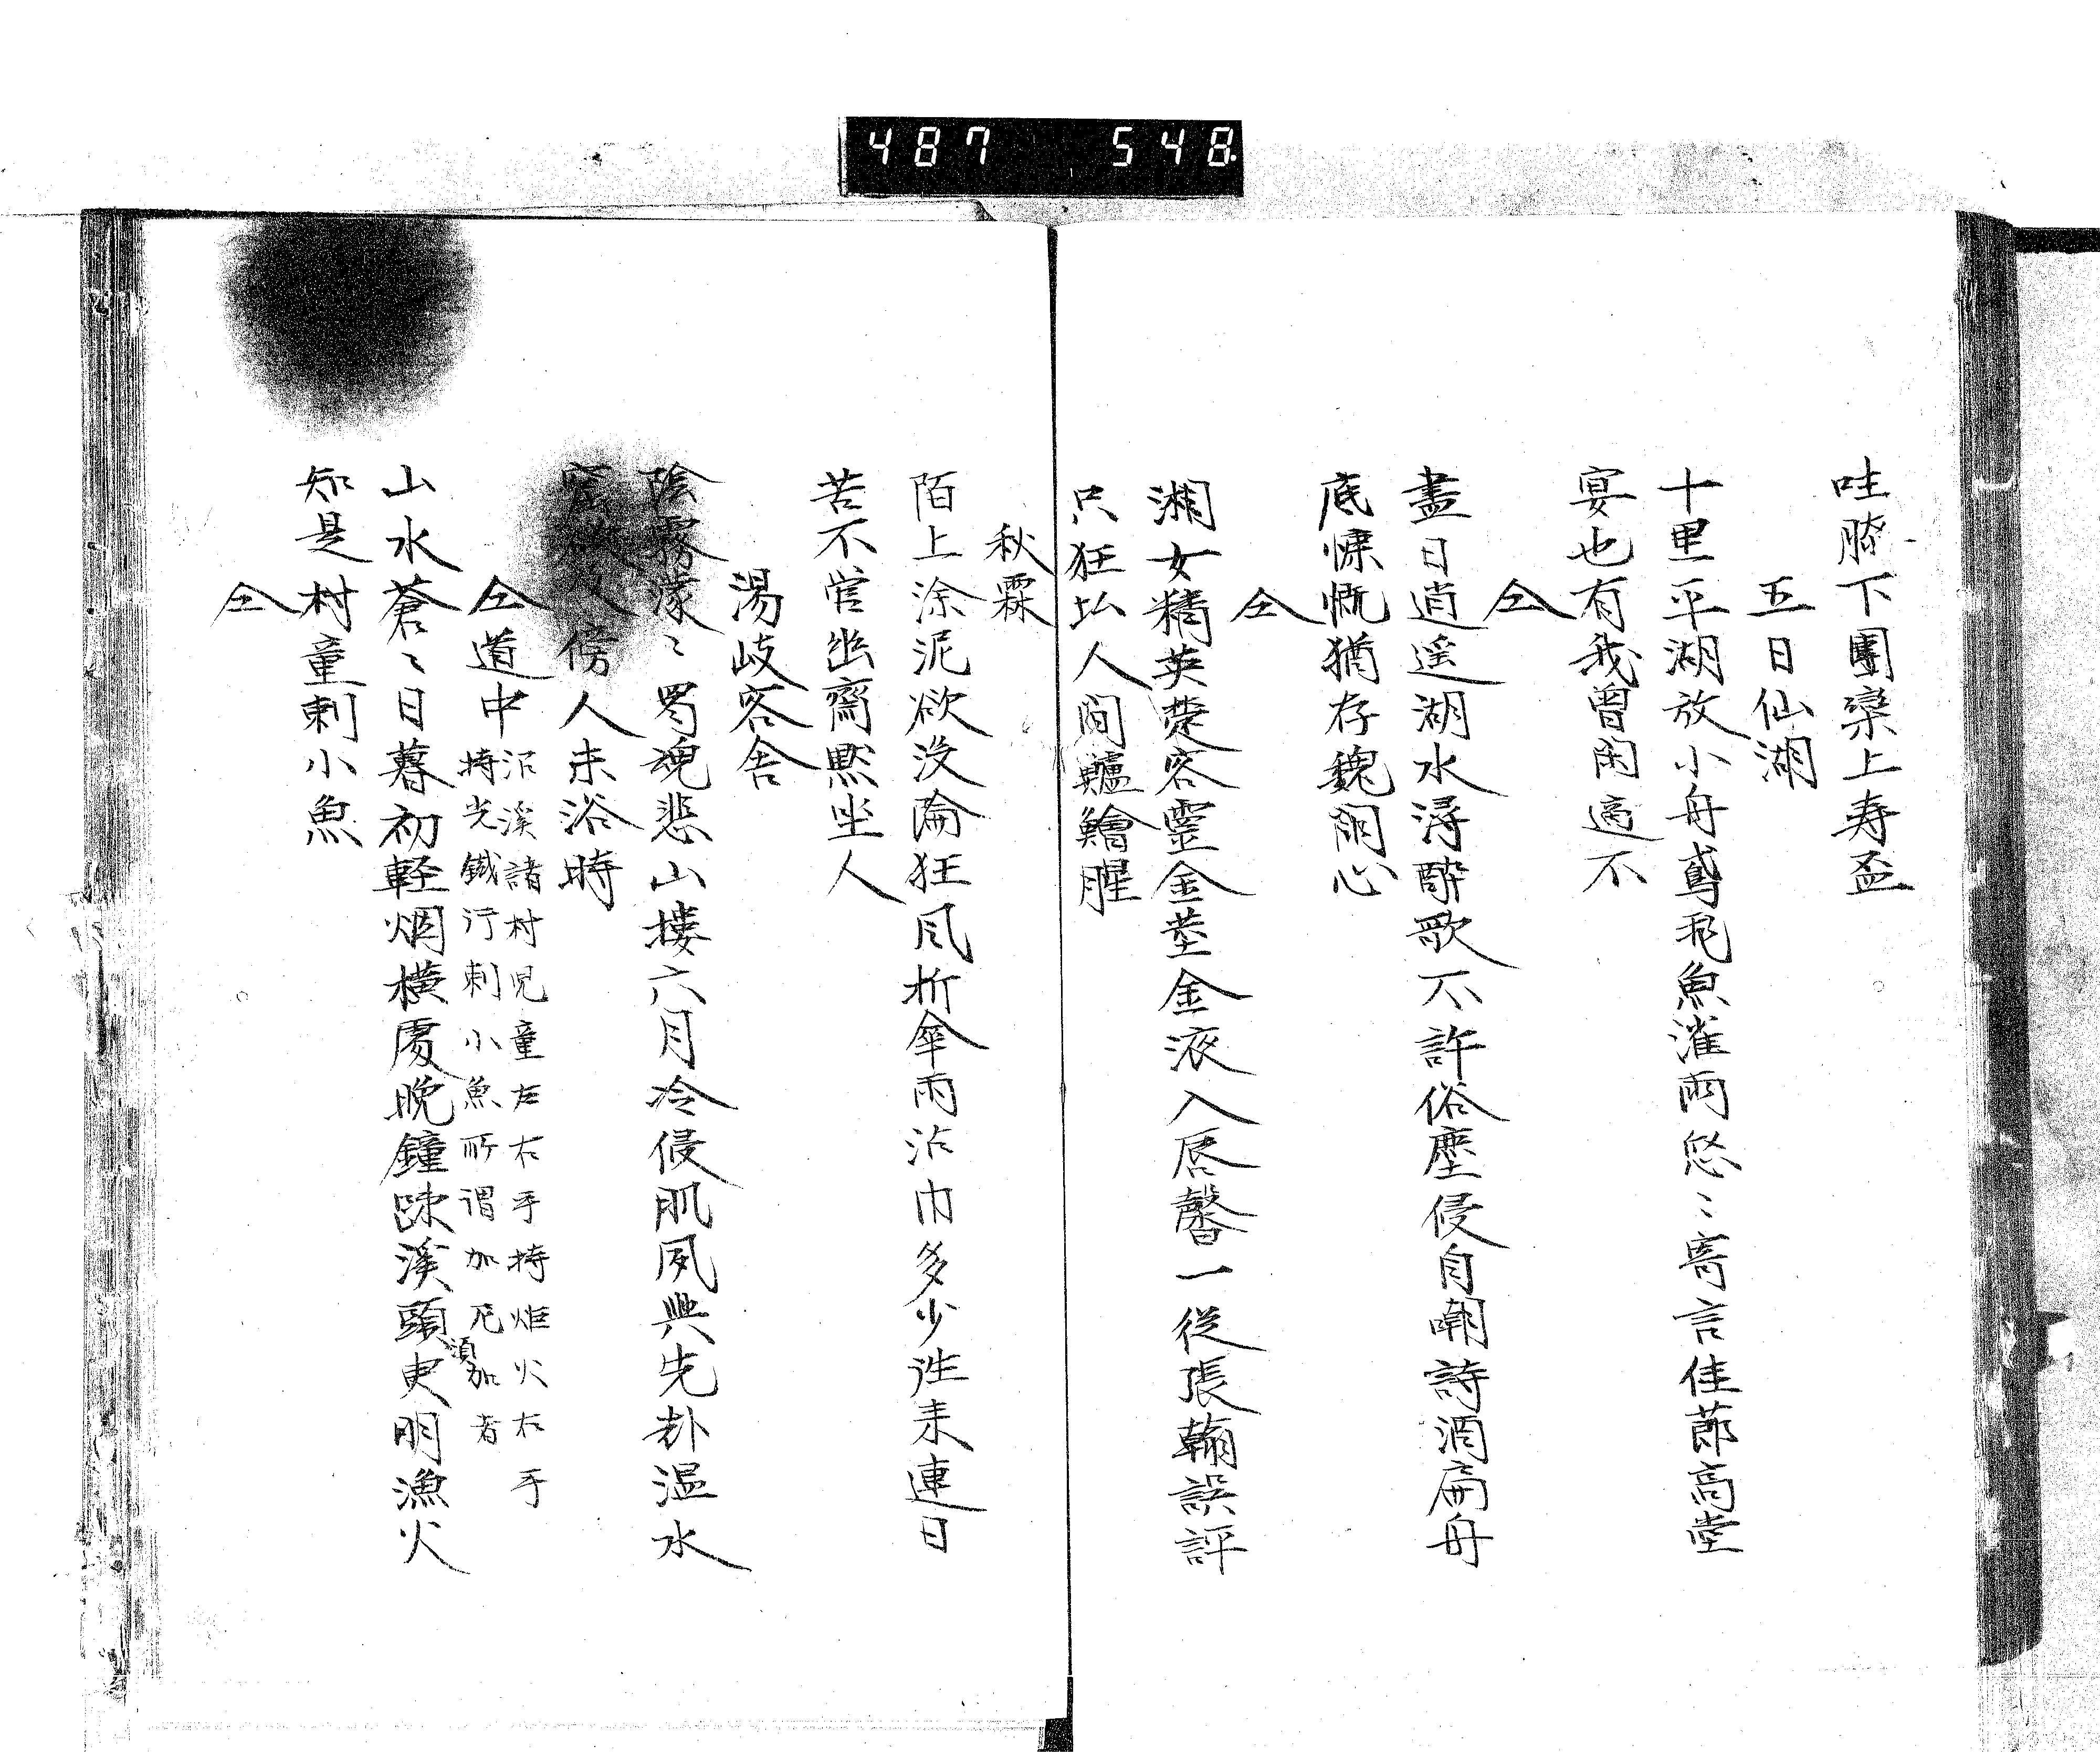 487 548
哇膝下團欒上寿盃
五日仙湖
十里平湖放小舟鳶飛魚濯両悠〻寄言佳莭高堂
宴也有我曽閑適不
仝
盡日逍遥湖水潯酔歌不許俗塵侵自嘲詩酒扁舟
底慷慨猶存魏闕心
仝
湘女精英楚客霊金虀金液入唇馨一従張翰誤評
只狂㕥人間鱸鱠腥
秋霖
陌上涂泥欲没隃狂風折傘雨沾巾多少往来連日
苦不啻幽齋黙坐人
湯岐客舎
陰霧濛〻蜀魂悲山楼六月冷侵肌夙興先卦温水
傍人未浴時
仝道中
沂溪諸村児童左右手持炬火右手
持尖鐵行刺小魚所謂加尼須加者
山水蒼〻日暮初軽烟横處晩鐘踈溪頭更明漁火
知是村童刺小魚
仝